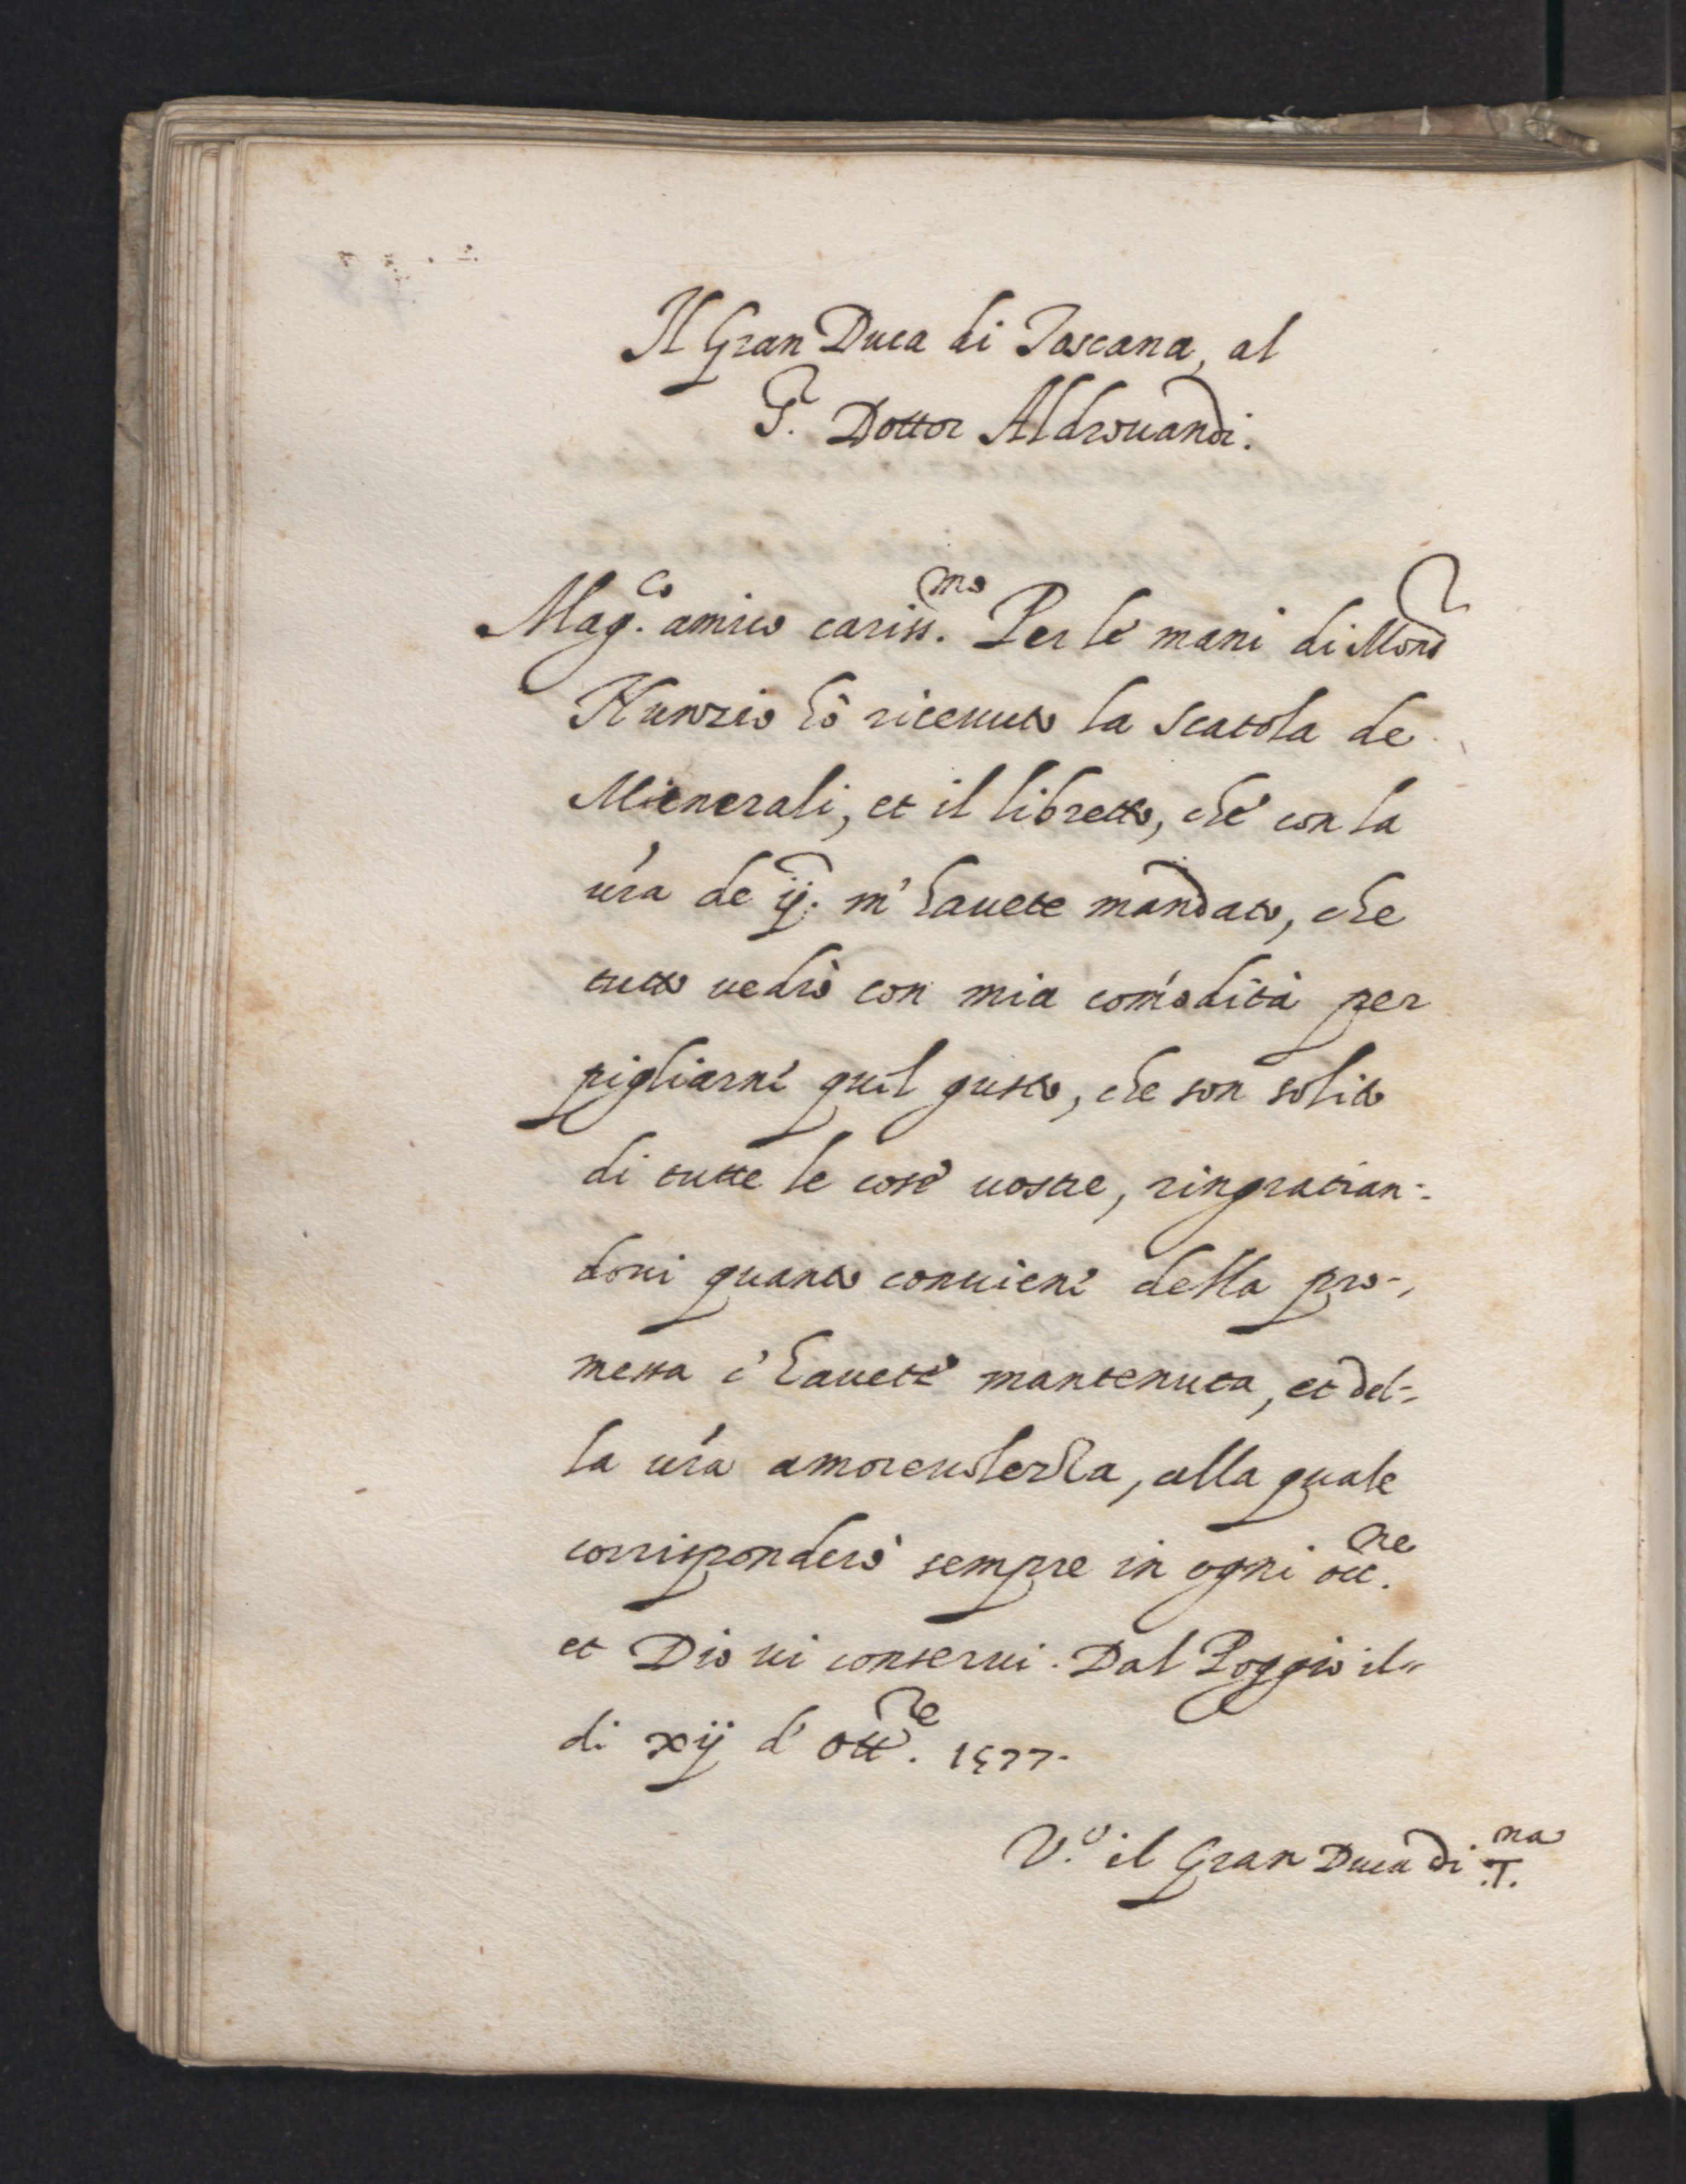 Il Gran Duca di Toscana, al
S.r Dottor Aldrouandi.
Mag.co amico cariss.mo Per le mani di Mons.r
Nunzio hò riceuuto la scatola de
Minerali, et il libretto, che con la
ura de ij. m'hauete mandato, che
tutto uedrò con mia comodità per
pigliarne quel gusto, che son solito
di tutte le cose uostre, ringratian-
doui quanto conuiene della pro-
messa c'hauete mantenuta, et del-
la ura amoreuolezza, alla quale
corrisponderò sempre in ogni occ.ne
et Dio ui conserui. Dal Poggio il
di xij d'ott.re 1577.
V.o il Gran Duca di T.na